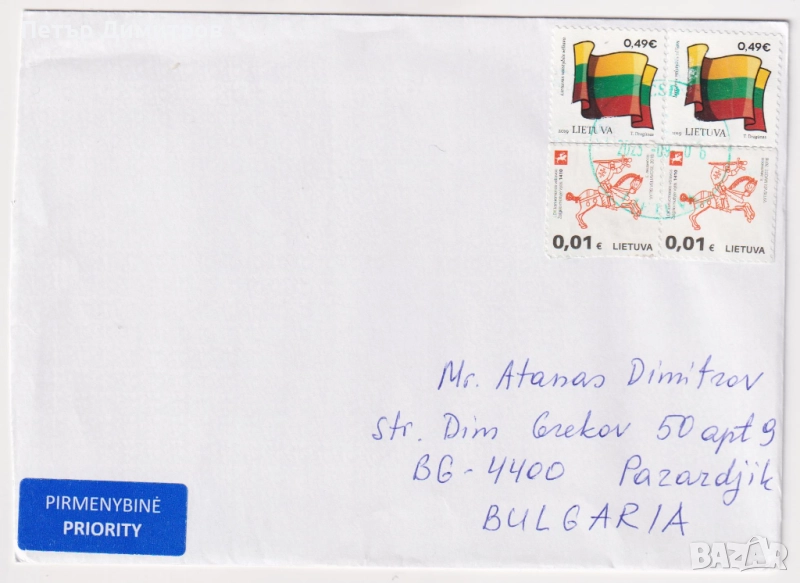 Петър Димитров
0,49€
0,49€
2019 LIETUVA
2019 LIETUVA
0,01 € LIETUVA
0,01 € LIETUVA
Mr. Atanas Dimitrov
Str. Dim Grekov 50 apt 9
BG-4400 Pazardjik
BULGARIA
PIRMENYBINĖ
PRIORITY
BAZAR